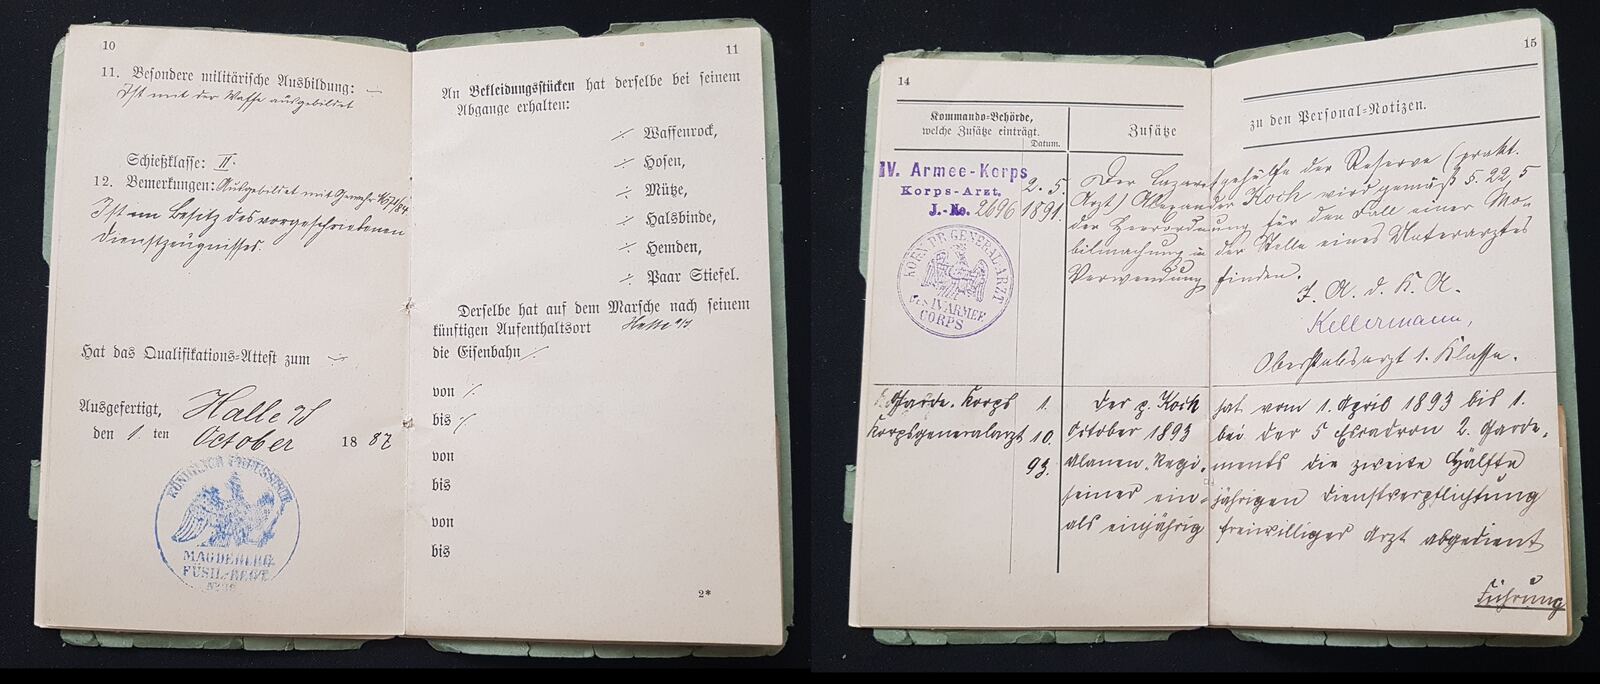 10
11. Besondere militärische Ausbildung:
Ist mit der Waffe ausgebildet
Schießklasse: II.
12. Bemerkungen: Ausgebildet mit Gewehr M/71/84
Ist im Besitz des vorgeschriebenen
Dienstzeugnisses.
Hat das Qualifikations-Attest zum
Ausgefertigt, Halle a/S
den 1. ten October 1887
KÖNIGLICH PREUSSISCHE
MAGDEBURG.
FÜSIL.-REGT.
No 36
11
An Bekleidungsstücken hat derselbe bei seinem
Abgange erhalten:
Waffenrock,
Hosen,
Mütze,
Halsbinde,
Hemden,
Paar Stiefel.
Derselbe hat auf dem Marsche nach seinem
künftigen Aufenthaltsort Halle a/S
die Eisenbahn
von
bis
von
bis
von
bis
2*
14
Kommando-Behörde,
welche Zusätze einträgt.
Datum.
Zusätze
15
zu den Personal-Notizen.
IV. Armee-Korps
Korps-Arzt.
J.-No. 2696
2. 5.
1891.
KÖNIGL. PR. GENERALARZT
DES IV. ARMEE
CORPS
Der Lazarethgehülfe der Reserve (prakt.
Arzt) Alexander Koch wird gemäß §. 22,5
der Heerordnung für den Fall einer Mo-
bilmachung in der Stelle eines Unterarztes
Verwendung finden.
J. A. d. K. A.
Kellermann,
Oberstabsarzt 1. Klasse.
Garde. Korps 1.
Korpsgeneralarzt 10.
93.
Der p. Koch hat vom 1. April 1893 bis 1.
October 1893 bei der 5 Escadron 2. Garde-
Ulanen. Regi-ments die zweite Hälfte
seiner ein-jährigen Dienstverpflichtung
als einjährig freiwilliger Arzt abgedient
Führung